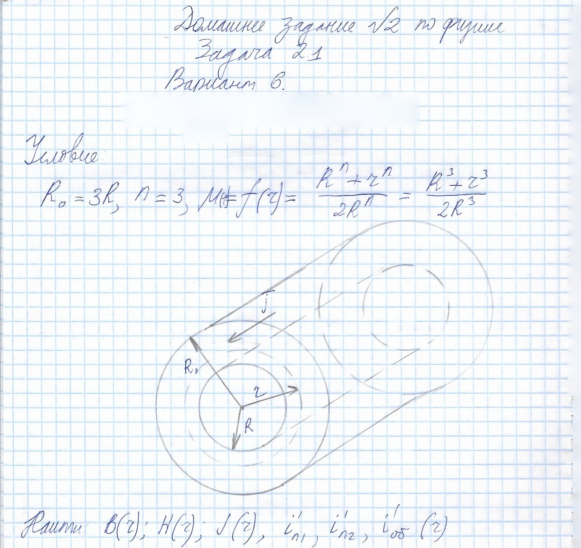 Домашнее задание №2 по физике
Задача 21
Вариант 6.
Условие
R₀ = 3R, n = 3, μ = f(r) = (Rⁿ + rⁿ)/(2Rⁿ) = (R³ + r³)/(2R³)
J
R₀
r
R
Найти B(r); H(r); J(r), i'п1, i'п2, i'об (r)